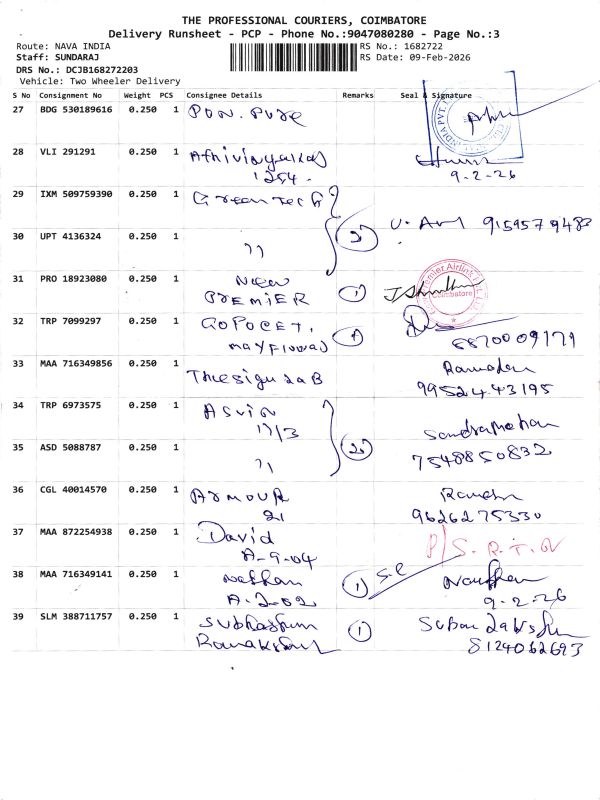 THE PROFESSIONAL COURIERS, COIMBATORE
Delivery Runsheet - PCP - Phone No.:9047080280 - Page No.:3
Route: NAVA INDIA
Staff: SUNDARAJ
DRS No.: DCJB168272203
Vehicle: Two Wheeler Delivery
RS No.: 1682722
RS Date: 09-Feb-2026
S No Consignment No Weight PCS Consignee Details Remarks Seal & Signature
27 BDG 530189616 0.250 1 Pon. Pure
28 VLI 291291 0.250 1
1254. 9-2-26
29 IXM 509759390 0.250 1 Green Tech
30 UPT 4136324 0.250 1 " 2
31 PRO 18923080 0.250 1 New
PREMIER 1 Premier Coimbatore
32 TRP 7099297 0.250 1
8870009171
33 MAA 716349856 0.250 1
9952443195
34 TRP 6973575 0.250 1 Asvin
17/3
35 ASD 5088787 0.250 1 " 2 7548850832
36 CGL 40014570 0.250 1 Armour Ramesh
21 9626275330
37 MAA 872254938 0.250 1 David
A-9-04
38 MAA 716349141 0.250 1 1
A-2-02 9-2-26
39 SLM 388711757 0.250 1 1
8124062693